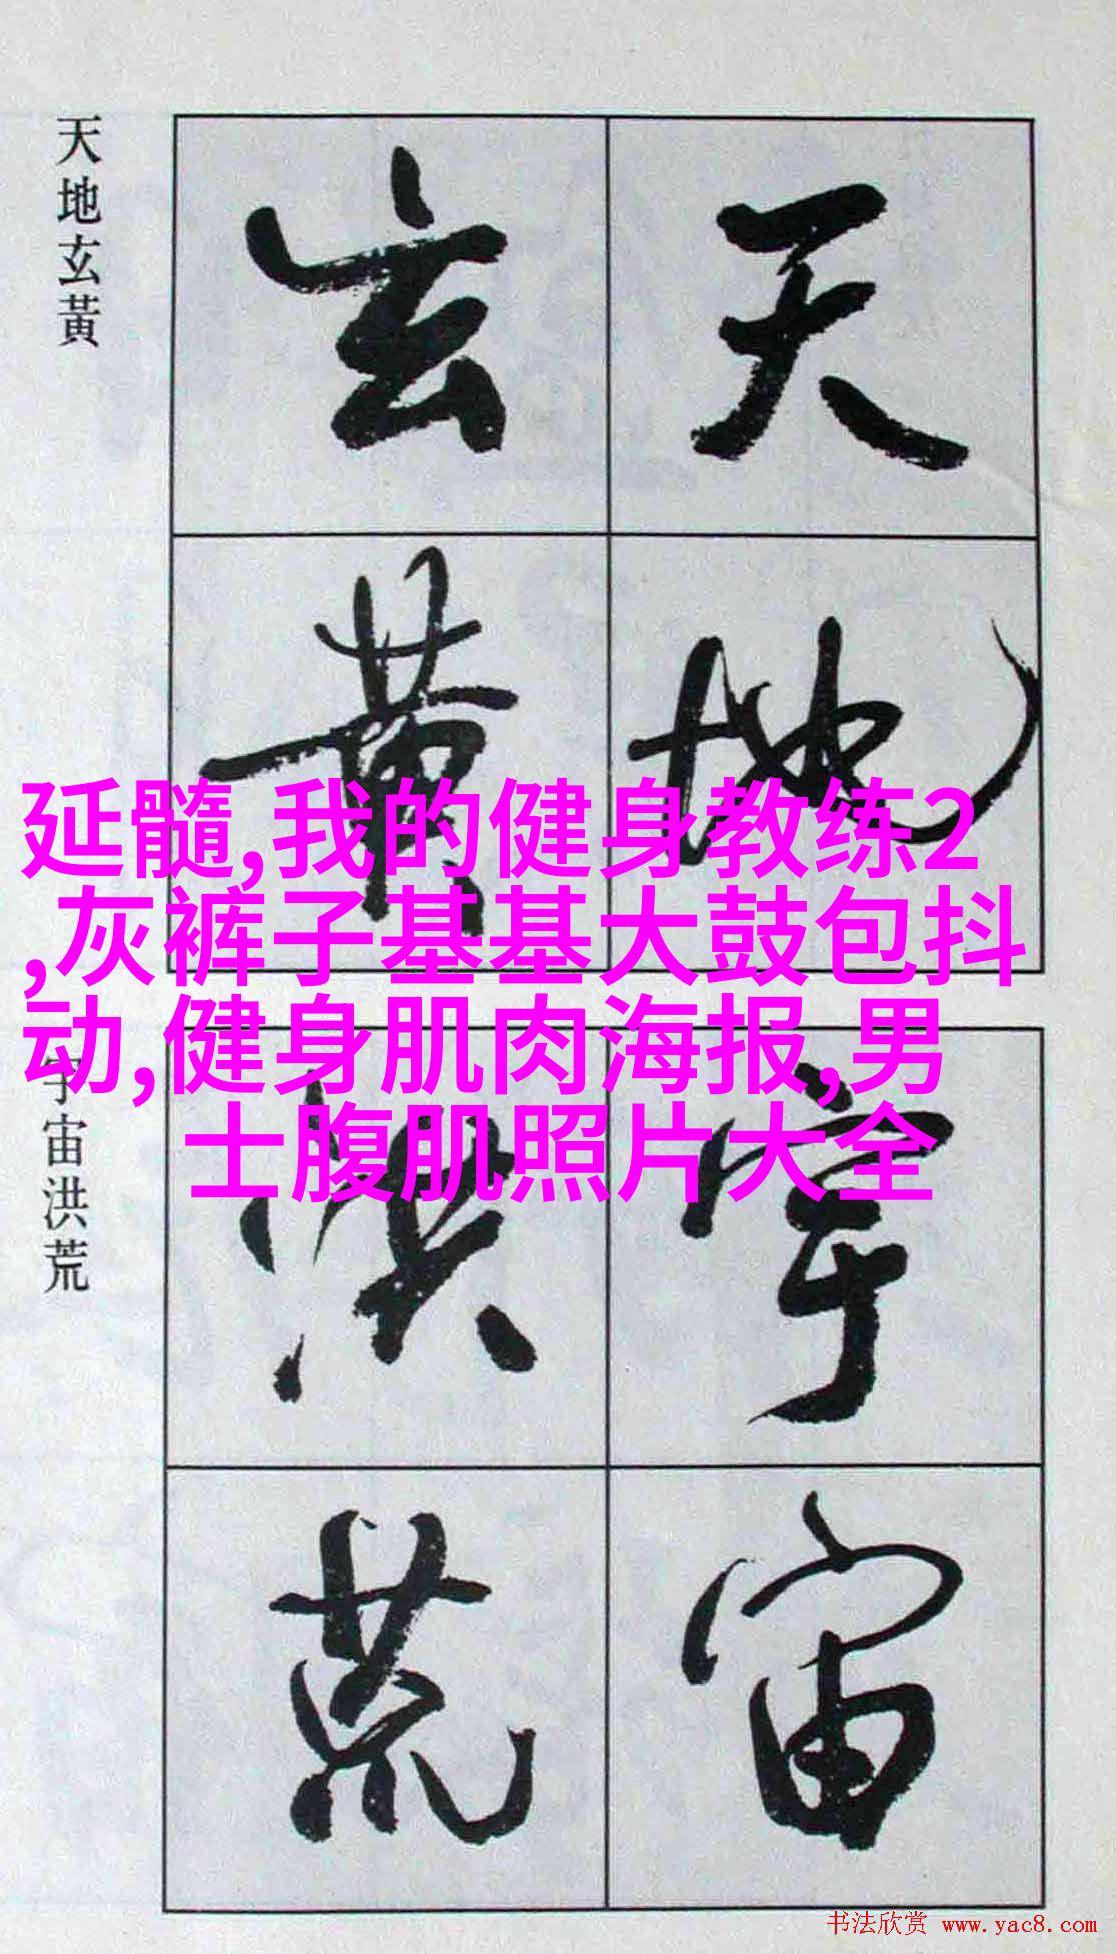 天地玄黃
天
地
玄
黃
延髓,我的健身教练2
,灰裤子基基大鼓包抖
动,健身肌肉海报,男
士腹肌照片大全
宇宙洪荒
宇
宙
洪
荒
书法欣赏 www.yac8.com